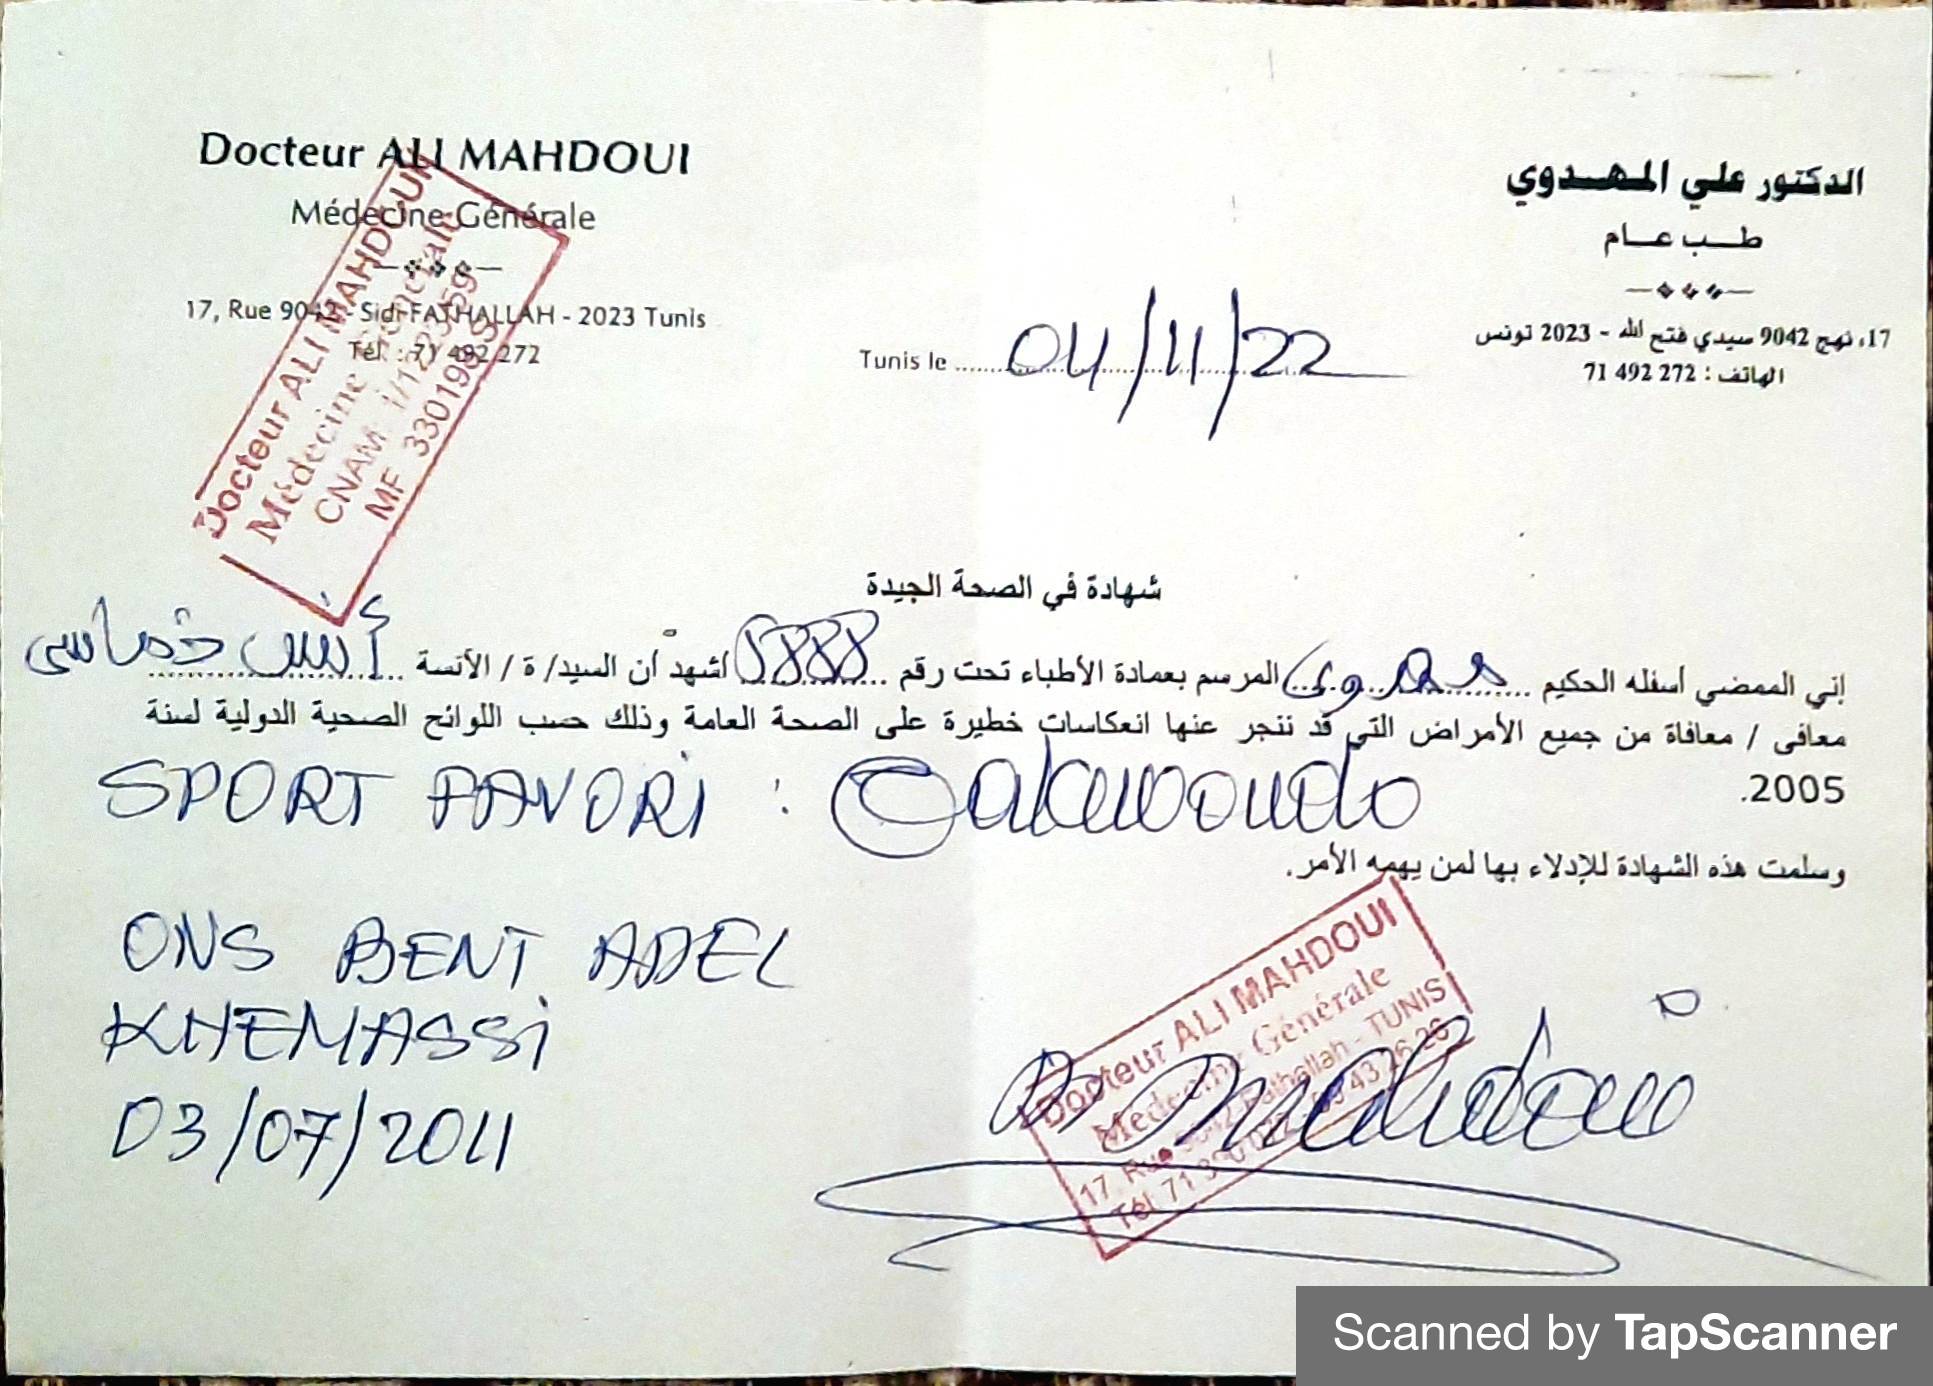 Docteur ALI MAHDOUI
Médecine Générale
17, Rue 9042 - Sidi FATHALLAH - 2023 Tunis
Tél. : 71 492 272
الدكتور علي المهدوي
طب عام
17، نهج 9042 سيدي فتح الله - 2023 تونس
الهاتف : 272 492 71
Tunis le 04/11/22
Docteur ALI MAHDOUI
Médecine Générale
CNAM
MF
شهادة في الصحة الجيدة
إني الممضي أسفله الحكيم مهدوي المرسم بعمادة الأطباء تحت رقم أشهد أن السيد/ ة / الآنسة أنس خماسي
معافى / معافاة من جميع الأمراض التي قد ننجر عنها انعكاسات خطيرة على الصحة العامة وذلك حسب اللوائح الصحية الدولية لسنة
2005.
SPORT FAVORI :
وسلمت هذه الشهادة للإدلاء بها لمن يهمه الأمر.
ONS BENT ADEL
KHEMASSI
03/07/2011
Docteur ALI MAHDOUI
Médecine Générale
17, Rue 9042 Fathallah - TUNIS
Tél 71
Scanned by TapScanner